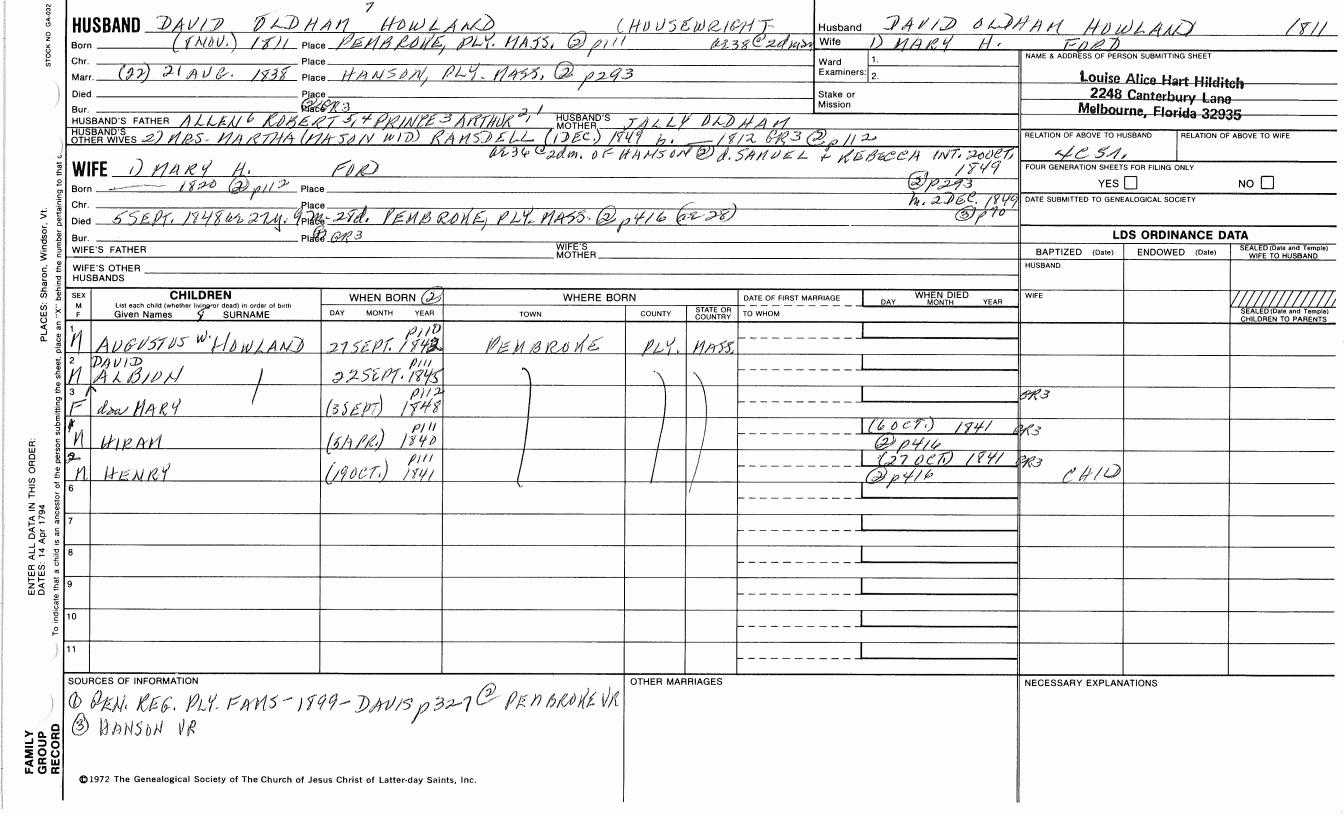 STOCK NO. GA-032
7
HUSBAND DAVID OLDHAM HOWLAND (HOUSEWRIGHT
Born (8 NOV.) 1811 Place PEMBROKE, PLY. MASS. ② p111 ae 38 @ 2d mar
Chr. Place
Marr. (22) 21 AUG. 1838 Place HANSON, PLY. MASS. ② p293
Died Place
Bur. Place GR3
HUSBAND'S FATHER ALLEN 6 ROBERT 5, 4 PRINCE 3 ARTHUR 2, 1 HUSBAND'S MOTHER SALLY OLDHAM
HUSBAND'S OTHER WIVES 2) MRS. MARTHA (MASON WID) RAMSDELL (1 DEC.) 1849 b. 1812 GR3 ② p112
ae 36 @ 2d m. OF HANSON ② d. SAMUEL + REBECCA INT. 20 OCT. 1849
② p293
m. 2 DEC. 1849
③ p70
WIFE 1) MARY H. FORD
Born 1820 ② p112 Place
Chr. Place
Died 5 SEPT. 1848 ae 27y. 9m-28d. Place PEMBROKE, PLY. MASS. ② p416 (ae 28)
Bur. Place GR3
WIFE'S FATHER WIFE'S MOTHER
WIFE'S OTHER HUSBANDS
Husband DAVID OLDHAM HOWLAND 1811
Wife 1) MARY H. FORD
Ward Examiners: 1. 2.
Stake or Mission
NAME & ADDRESS OF PERSON SUBMITTING SHEET
Louise Alice Hart Hilditch
2248 Canterbury Lane
Melbourne, Florida 32935
RELATION OF ABOVE TO HUSBAND RELATION OF ABOVE TO WIFE
4C 5 1.
FOUR GENERATION SHEETS FOR FILING ONLY
YES NO
DATE SUBMITTED TO GENEALOGICAL SOCIETY
LDS ORDINANCE DATA
BAPTIZED (Date) ENDOWED (Date) SEALED (Date and Temple) WIFE TO HUSBAND
HUSBAND
WIFE
SEALED (Date and Temple) CHILDREN TO PARENTS
SEX M F
CHILDREN
List each child (whether living or dead) in order of birth
Given Names SURNAME
WHEN BORN ②
DAY MONTH YEAR
WHERE BORN
TOWN COUNTY STATE OR COUNTRY
DATE OF FIRST MARRIAGE
TO WHOM
WHEN DIED
DAY MONTH YEAR
1 M AUGUSTUS W. HOWLAND 27 SEPT. 1842 p110 PEMBROKE PLY. MASS.
2 M DAVID ALBION 22 SEPT. 1845 p111
3 F MARY (3 SEPT) 1848 p112 GR3
M HIRAM (5 APR.) 1840 p111 (6 OCT.) 1841 ② p416 GR3
M HENRY (19 OCT.) 1841 p111 (27 OCT) 1841 ② p416 GR3 CHILD
6
7
8
9
10
11
SOURCES OF INFORMATION
① GEN. REG. PLY. FAMS-1899-DAVIS p327 ② PEMBROKE VR
③ HANSON VR
OTHER MARRIAGES
NECESSARY EXPLANATIONS
©1972 The Genealogical Society of The Church of Jesus Christ of Latter-day Saints, Inc.
FAMILY GROUP RECORD
ENTER ALL DATA IN THIS ORDER:
DATES: 14 Apr 1794
PLACES: Sharon, Windsor, Vt.
To indicate that a child is an ancestor of the person submitting the sheet, place an "X" behind the number pertaining to that c